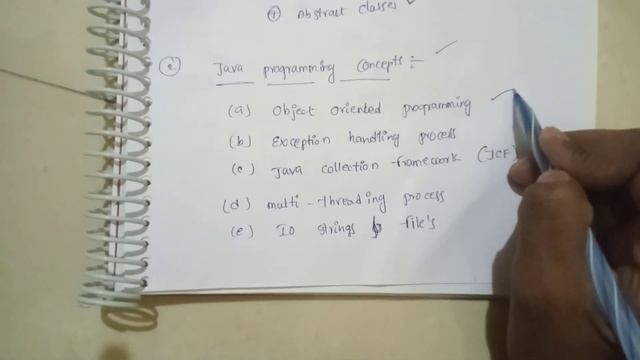 ④ Abstract classes
② Java programming Concepts :-
(a) Object oriented programming
(b) Exception handling process
(c) Java collection framework (JCF)
(d) multi-threading process
(e) IO strings & file's